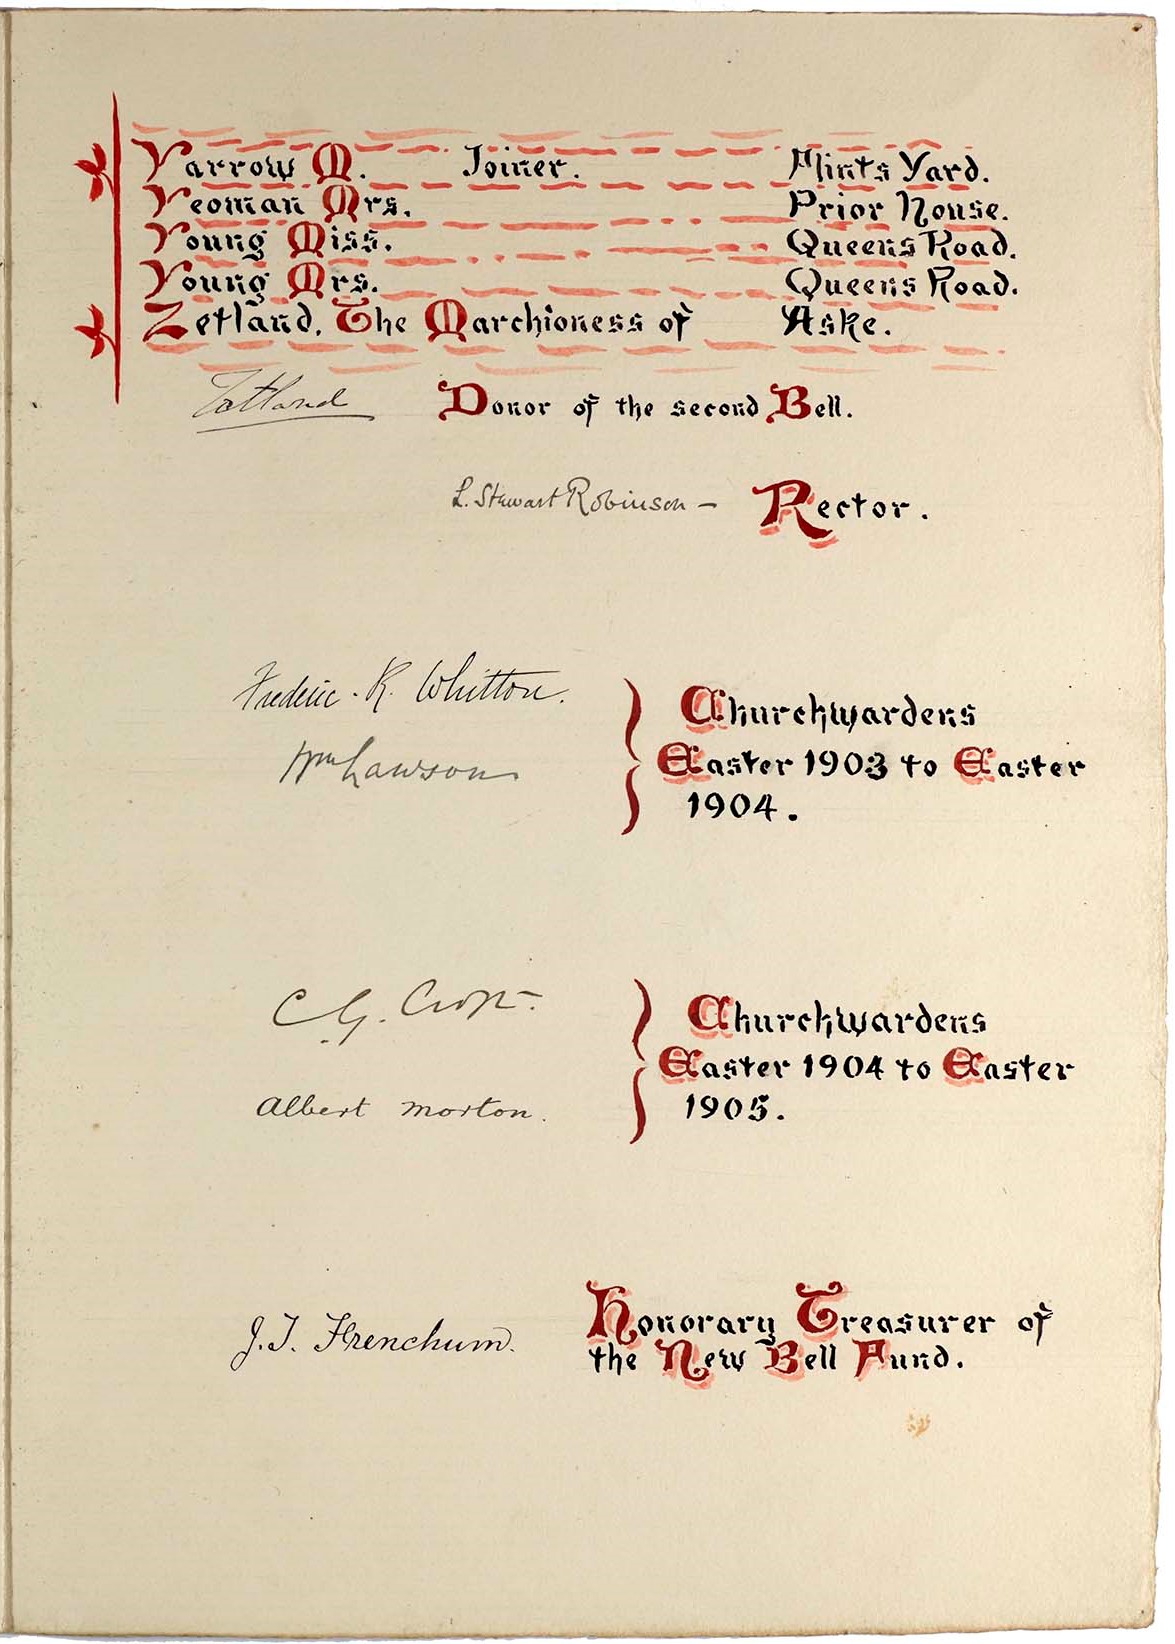 Yarrow M. Joiner. Flints Yard.
Yeoman Mrs. Prior House.
Young Miss. Queens Road.
Young Mrs. Queens Road.
Zetland, The Marchioness of Aske.
Zetland Donor of the second Bell.
L. Stewart Robinson — Rector.
Frederic. R. Whitton.
Churchwardens
Wm Lawson
Easter 1903 to Easter
1904.
C. G. Croft.
Churchwardens
Easter 1904 to Easter
Albert Morton.
1905.
Honorary Treasurer of
J. T. Trenchum.
the New Bell Fund.